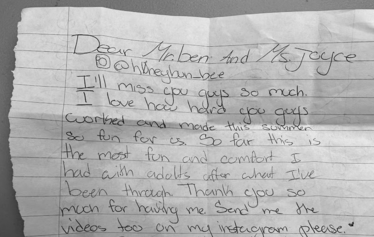 Dear Mr.ben And Ms Joyce
@h0neybun_bee
I'll miss you guys so much.
I love how hard you guys
worked and made this summer
so fun for us. So far this is
the most fun and comfort I
had with adults after what I've
been through. Thank you so
much for having me. Send me the
videos too on my instagram please.